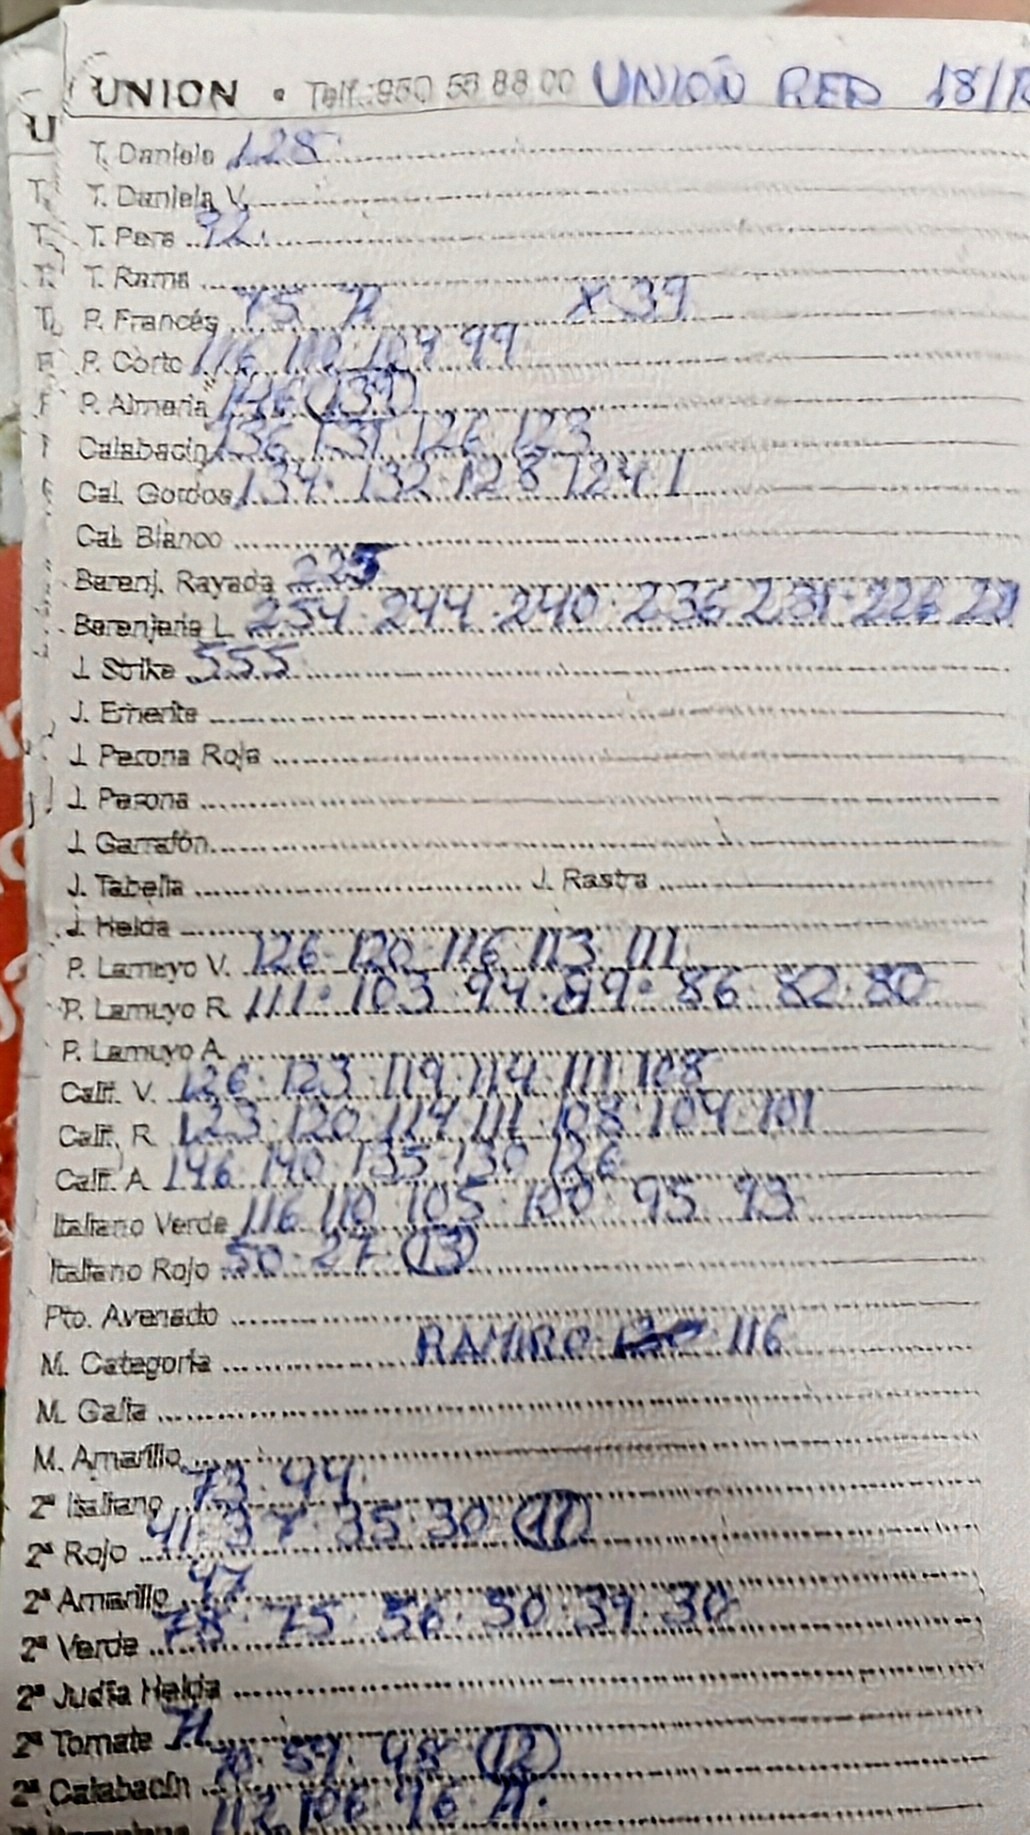 UNION • Telf.: 950 55 88 00 UNION RED 18/1
T. Daniela 128
T. Daniela V.
T. Pera 92
T. Rama
P. Francés 75 71 x 39
P. Corto 116 110 104 99
P. Almería 146 (139)
Calabacín 136 131 126 123
Cal. Gordos 134 132 128 124 1
Cal. Blanco
Berenj. Rayada 225
Berenjena L. 254 244 240 236 231 226
J. Strike 555
J. Emerite
J. Perona Roja
J. Perona
J. Garrafón
J. Tabella J. Rastra
J. Helda
P. Lamuyo V. 126 120 116 113 111
P. Lamuyo R. 111 103 94 89 86 82 80
P. Lamuyo A.
Calif. V. 126 123 119 114 111 108
Calif. R. 123 120 114 111 108 104 101
Calif. A. 146 140 135 130 126
Italiano Verde 116 110 105 100 95 93
Italiano Rojo 50 27 (13)
Pto. Avenado
M. Categoría RAMIRO 116
M. Galia
M. Amarillo
2ª Italiano 73 44
2ª Rojo 41 37 35 30
2ª Amarillo 47
2ª Verde 78 75 56 50 39 30
2ª Judía Helda
2ª Tomate 71
2ª Calabacín 59 48 (12)
112 106 96